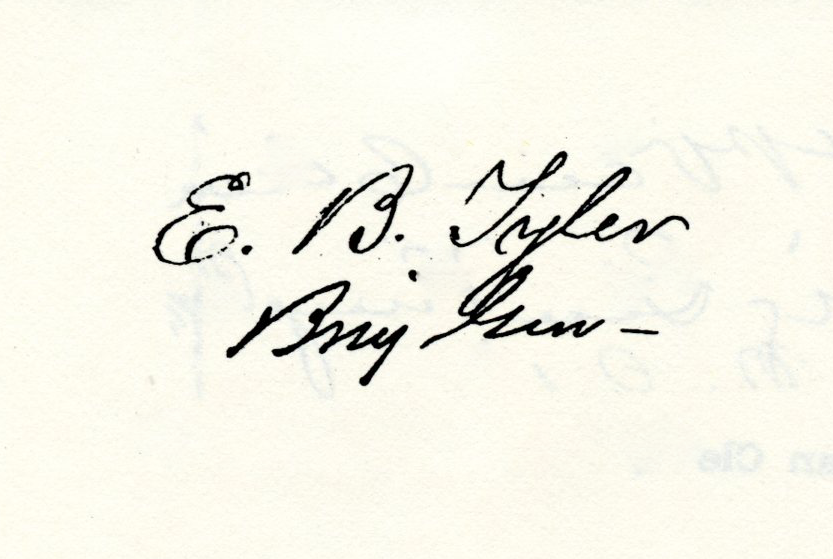 E. B. Tyler
Brig Gen –